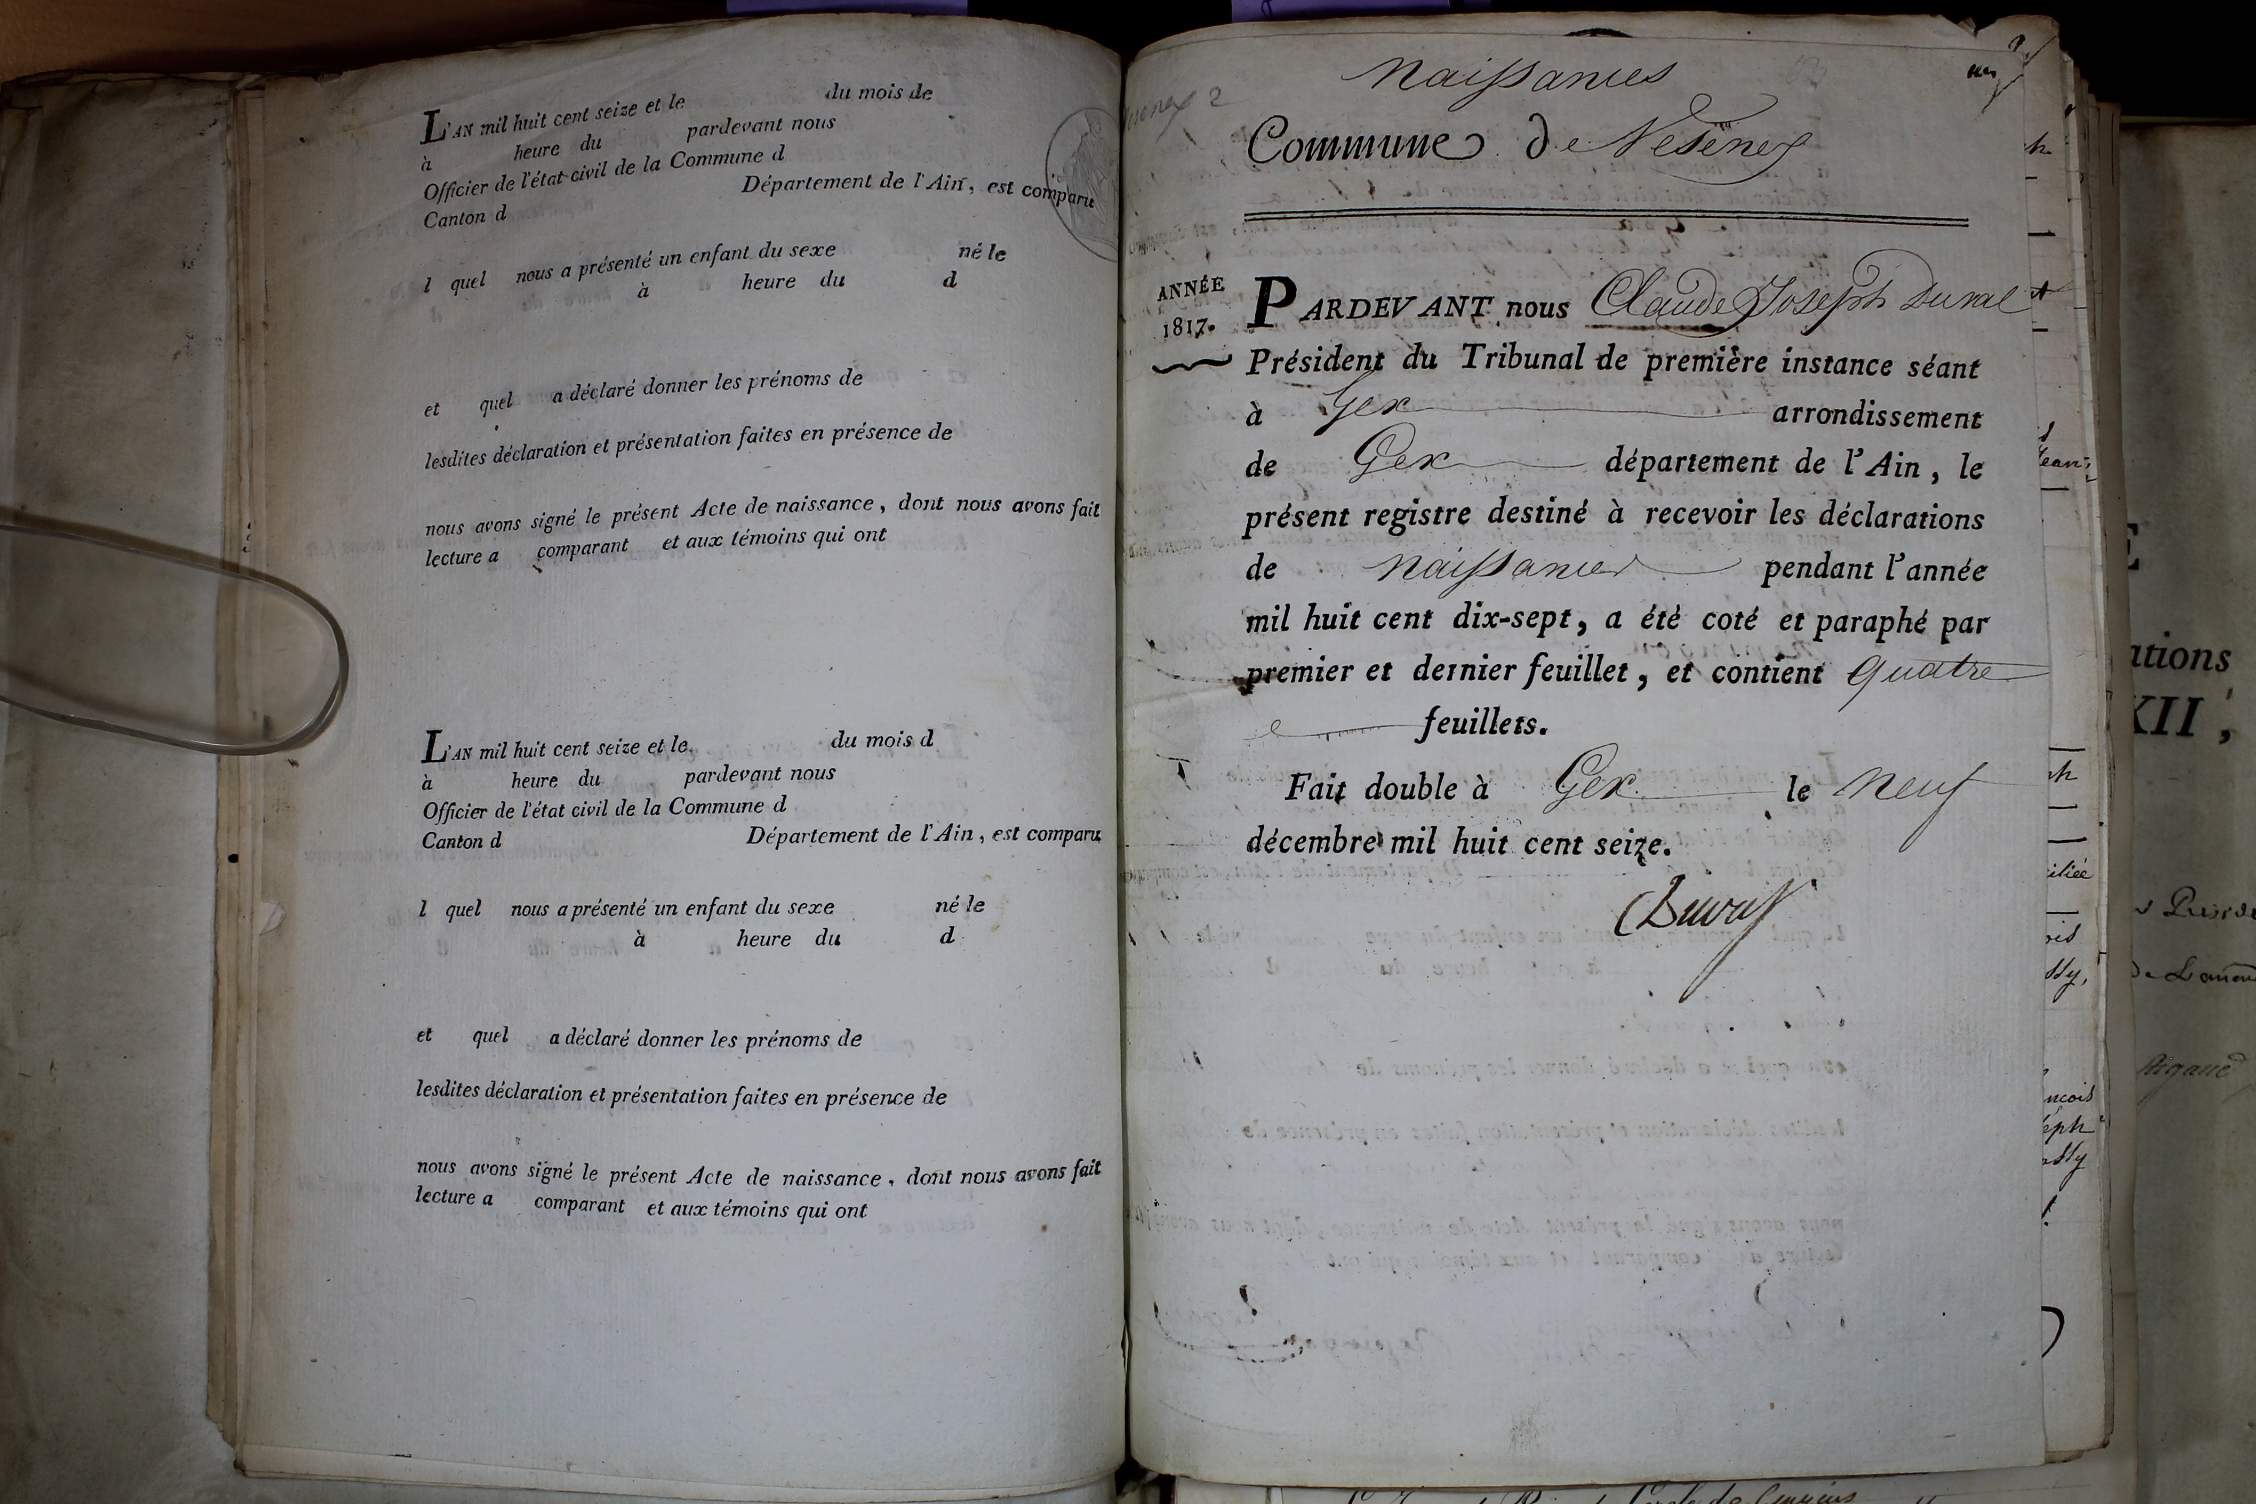 L'AN mil huit cent seize et le du mois de
à heure du pardevant nous
Officier de l'état civil de la Commune d
Canton d Département de l'Ain, est comparu
l quel nous a présenté un enfant du sexe né le
à heure du d
et quel a déclaré donner les prénoms de
lesdites déclaration et présentation faites en présence de
nous avons signé le présent Acte de naissance, dont nous avons fait
lecture a comparant et aux témoins qui ont
L'AN mil huit cent seize et le du mois d
à heure du pardevant nous
Officier de l'état civil de la Commune d
Canton d Département de l'Ain, est comparu
l quel nous a présenté un enfant du sexe né le
à heure du d
et quel a déclaré donner les prénoms de
lesdites déclaration et présentation faites en présence de
nous avons signé le présent Acte de naissance, dont nous avons fait
lecture a comparant et aux témoins qui ont
Naissances
Commune de Vesënex
ANNÉE
1817.
PARDEVANT nous Claude Joseph Duval
Président du Tribunal de première instance séant
à Gex arrondissement
de Gex département de l'Ain, le
présent registre destiné à recevoir les déclarations
de Naissances pendant l'année
mil huit cent dix-sept, a été coté et paraphé par
premier et dernier feuillet, et contient quatre
feuillets.
Fait double à Gex le neuf
décembre mil huit cent seize.
Duval